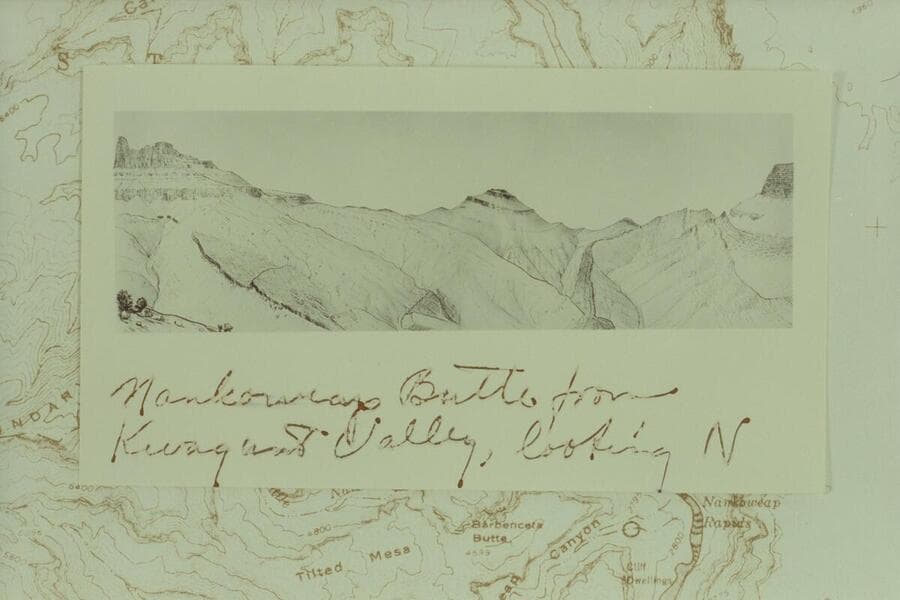 S T
6400
Nankoweap Butte from
Kwagunt Valley, looking N
6400
4800
Nankoweap
Rapids
Barbenceta
Butte
4633
Canyon
Tilted Mesa
2800
Cliff
Dwellings